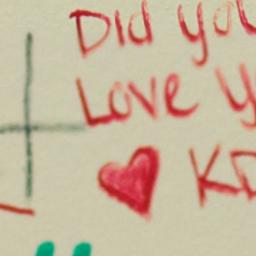 Did you
Love Y
♥ KD